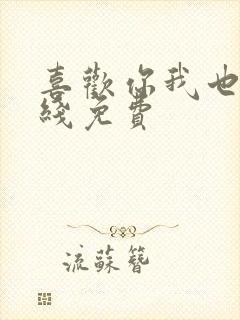 喜歡你我也
綫免費
流蘇簪